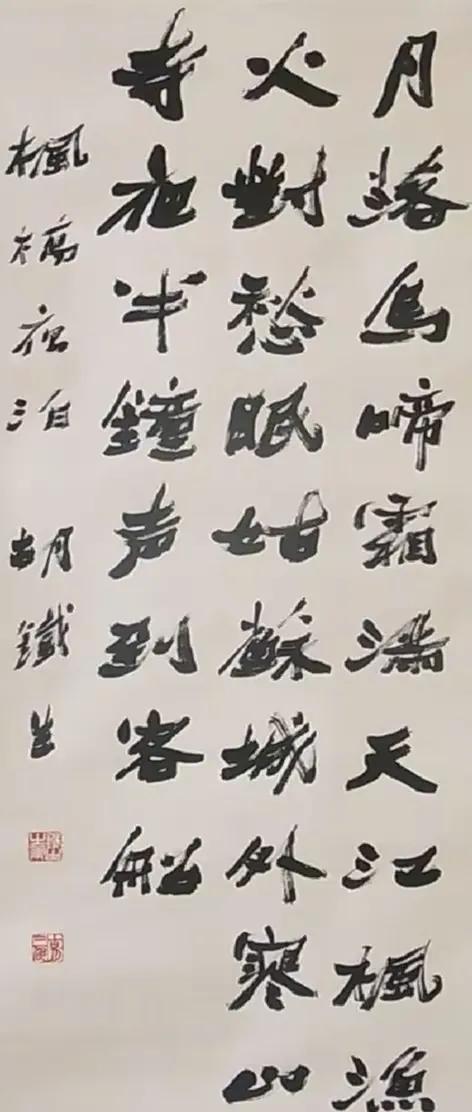 月落烏啼霜滿天江楓漁
火對愁眠姑蘇城外寒山
寺夜半鐘声到客船
楓橋夜泊 胡鐵生